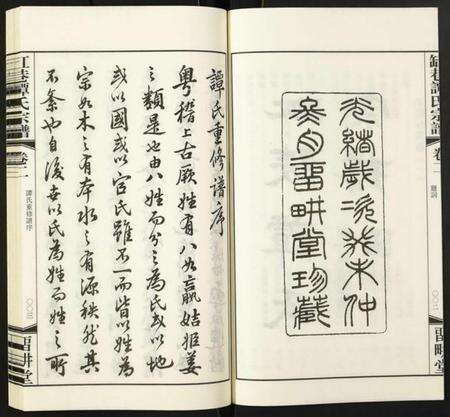 缸巷譚氏宗譜
卷一
題詞
〇〇二
留畊堂
光緒歲次癸未仲
冬月留畊堂珍藏
譚氏重修譜序
粵稽上古厥姓有八如嬴姞姬姜
之類是也由八姓而分之爲氏或以地
或以國或以官氏雖不一而皆以姓爲
宗如木之有本水之有源秩然其
不紊也自後世以氏爲姓而姓之所
缸巷譚氏宗譜
卷一
譚氏重修譜序
〇〇三
留畊堂